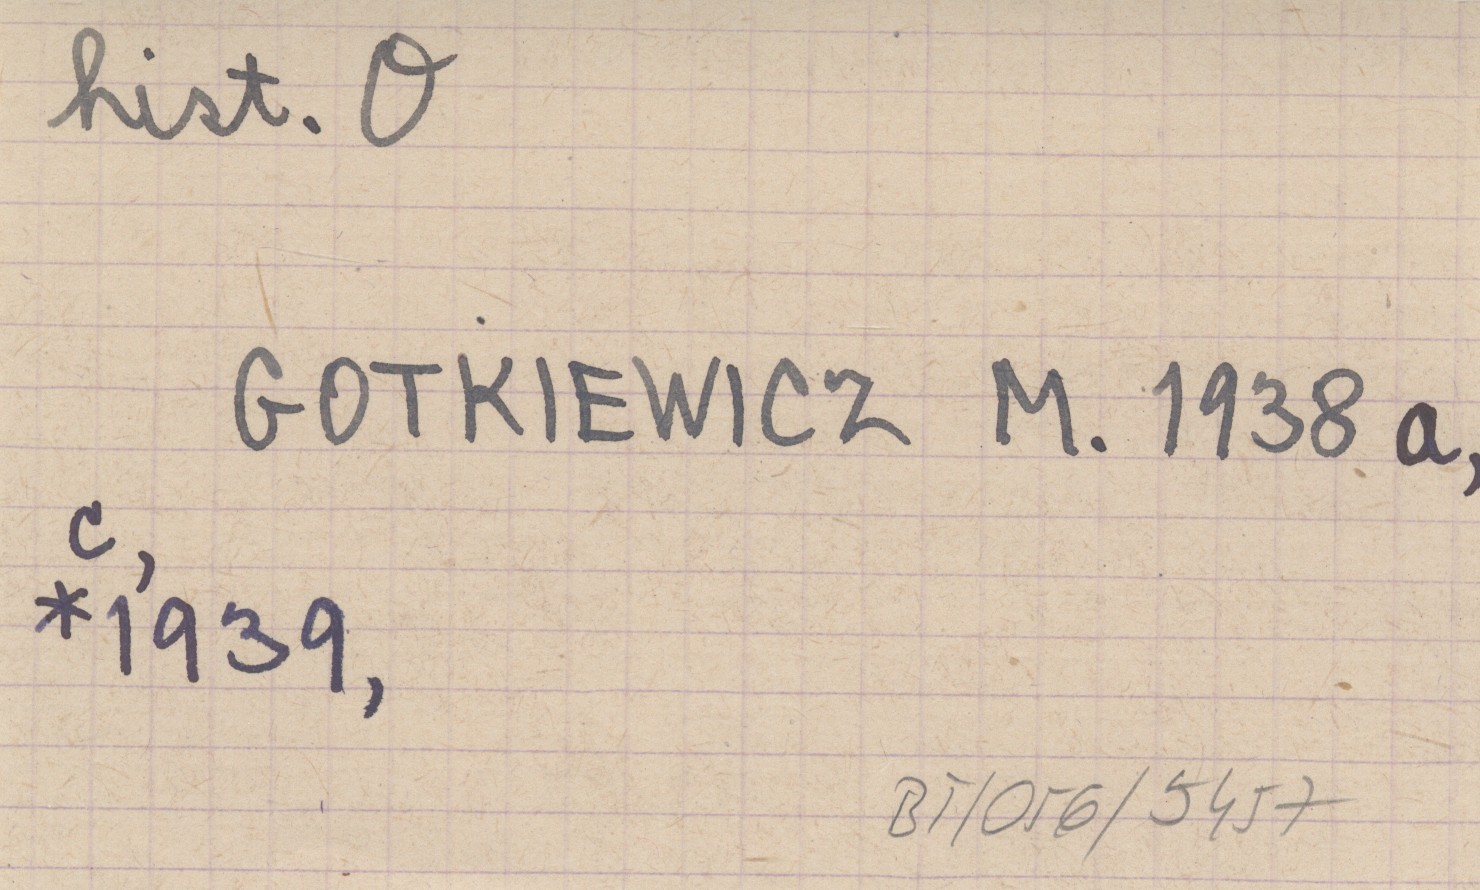 hist. O
GOTKIEWICZ M. 1938 a,
c,
*1939,
BT/056/5457